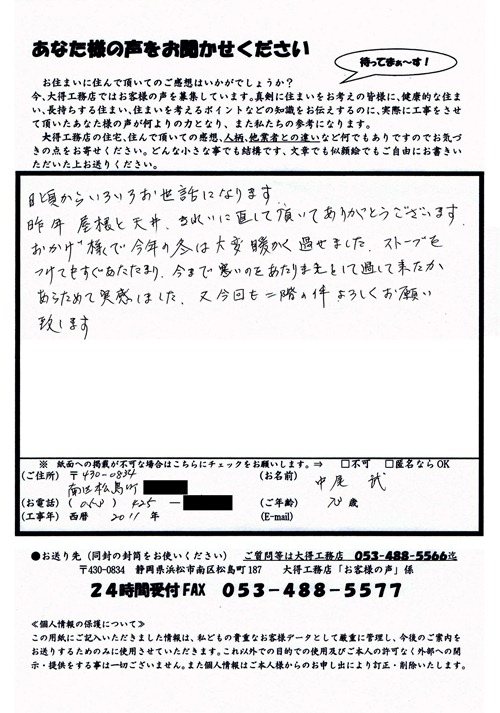 あなた様の声をお聞かせください
待ってまぁ～す！
お住まいに住んで頂いてのご感想はいかがでしょうか？
今、大得工務店ではお客様の声を募集しています。真剣に住まいをお考えの皆様に、健康的な住ま
い、長持ちする住い、住まいを考えるポイントなどの知識をお伝えするのに、実際に工事をさせ
て頂いたあなた様の声が何よりの力となり、また私たちの参考になります。
大得工務店の住宅、住んで頂いての感想、人柄、他業者との違いなど何でもありですのでお気づ
きの点をお寄せください。どんな小さな事でも結構です、文章でも似顔絵でもご自由にお書きい
ただいた上お送りください。
日頃からいろいろお世話になります
昨年 屋根と天井、きれいに直して頂いてありがとうございます.
おかげ様で今年の冬は大変暖かく過せました. ストーブを
つけてもすぐあたたまり、今まで寒いのをあたりまえとして過して来たか
あらためて実感しました、又今回も二階の件よろしくお願い
致します
※ 紙面への掲載が不可な場合はこちらにチェックをお願いします。⇒ □不可 □匿名ならOK
(ご住所) 〒430-0834 (お名前)
南区松島町 中尾 試
(お電話) (053) 425 ー (ご年齢) 73 歳
(工事年) 西暦 2011 年 (E-mail)
●お送り先（同封の封筒をお使いください） ご質問等は大得工務店 053-488-5566迄
〒430-0834 静岡県浜松市南区松島町187 大得工務店「お客様の声」係
24時間受付FAX 053-488-5577
≪個人情報の保護について≫
この用紙にご記入いただきました情報は、私どもの貴重なお客様データとして厳重に管理し、今後のご案内を
お送りするためのみに使用させていただきます。これ以外での目的での使用及びご本人の許可なく外部への開
示・提供をする事は一切ございません。また個人情報はご本人様からのお申し出により訂正・削除いたします。